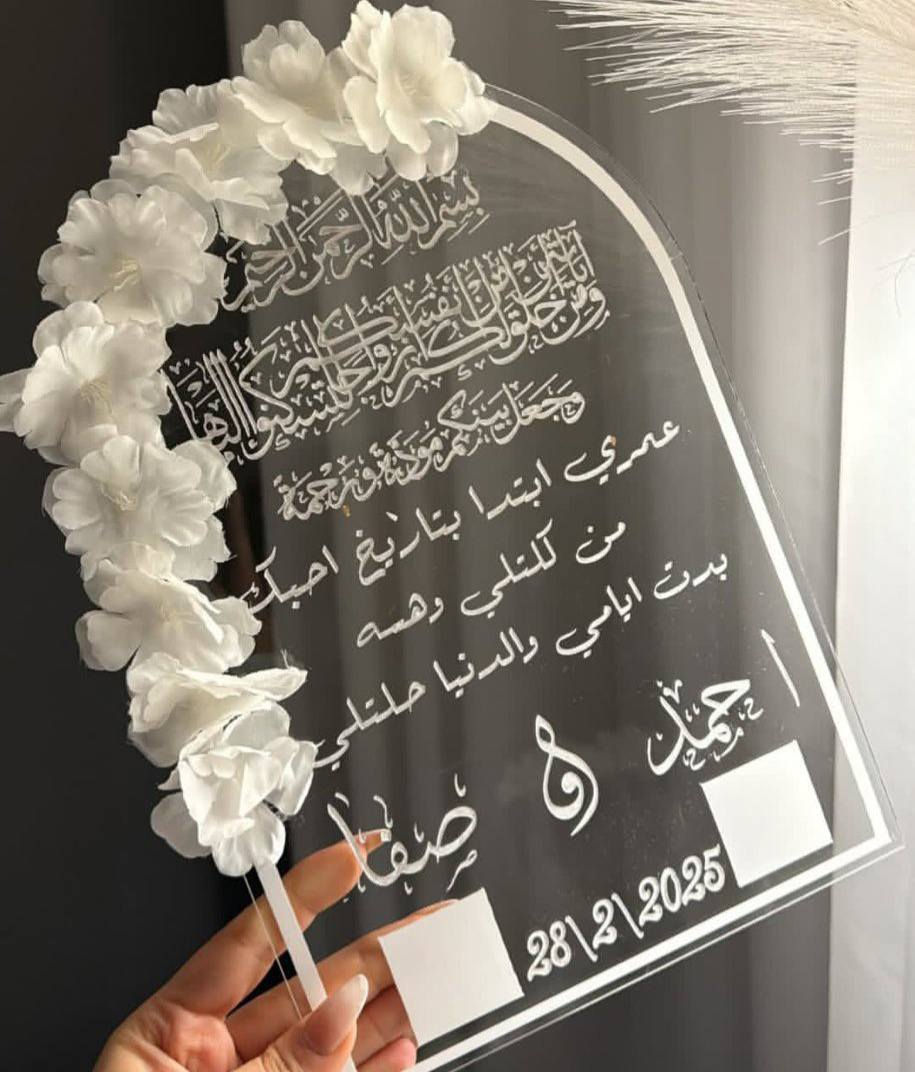 بِسْمِ اللَّهِ الرَّحْمَنِ الرَّحِيمِ
وَمِنْ آيَاتِهِ أَنْ خَلَقَ لَكُمْ مِنْ أَنْفُسِكُمْ أَزْوَاجًا لِتَسْكُنُوا إِلَيْهَا
وَجَعَلَ بَيْنَكُمْ مَوَدَّةً وَرَحْمَةً
عمري ابتدا بتاريخ احبك
من كلتلي وهسه
بدت ايامي والدنيا حلتلي
احمد و صفا
28\2\2025